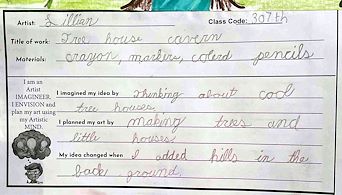 Artist: Lillian Class Code: 307th
Title of work: Tree house cavern
Materials: crayon, markers, colerd pencils
I am an
Artist
IMAGINEER.
I ENVISION and
plan my art using
my Artistic
MIND.
I imagined my idea by thinking about cool
tree houses,
I planned my art by making tries and
little houses
My idea changed when I added hills in the
back ground.